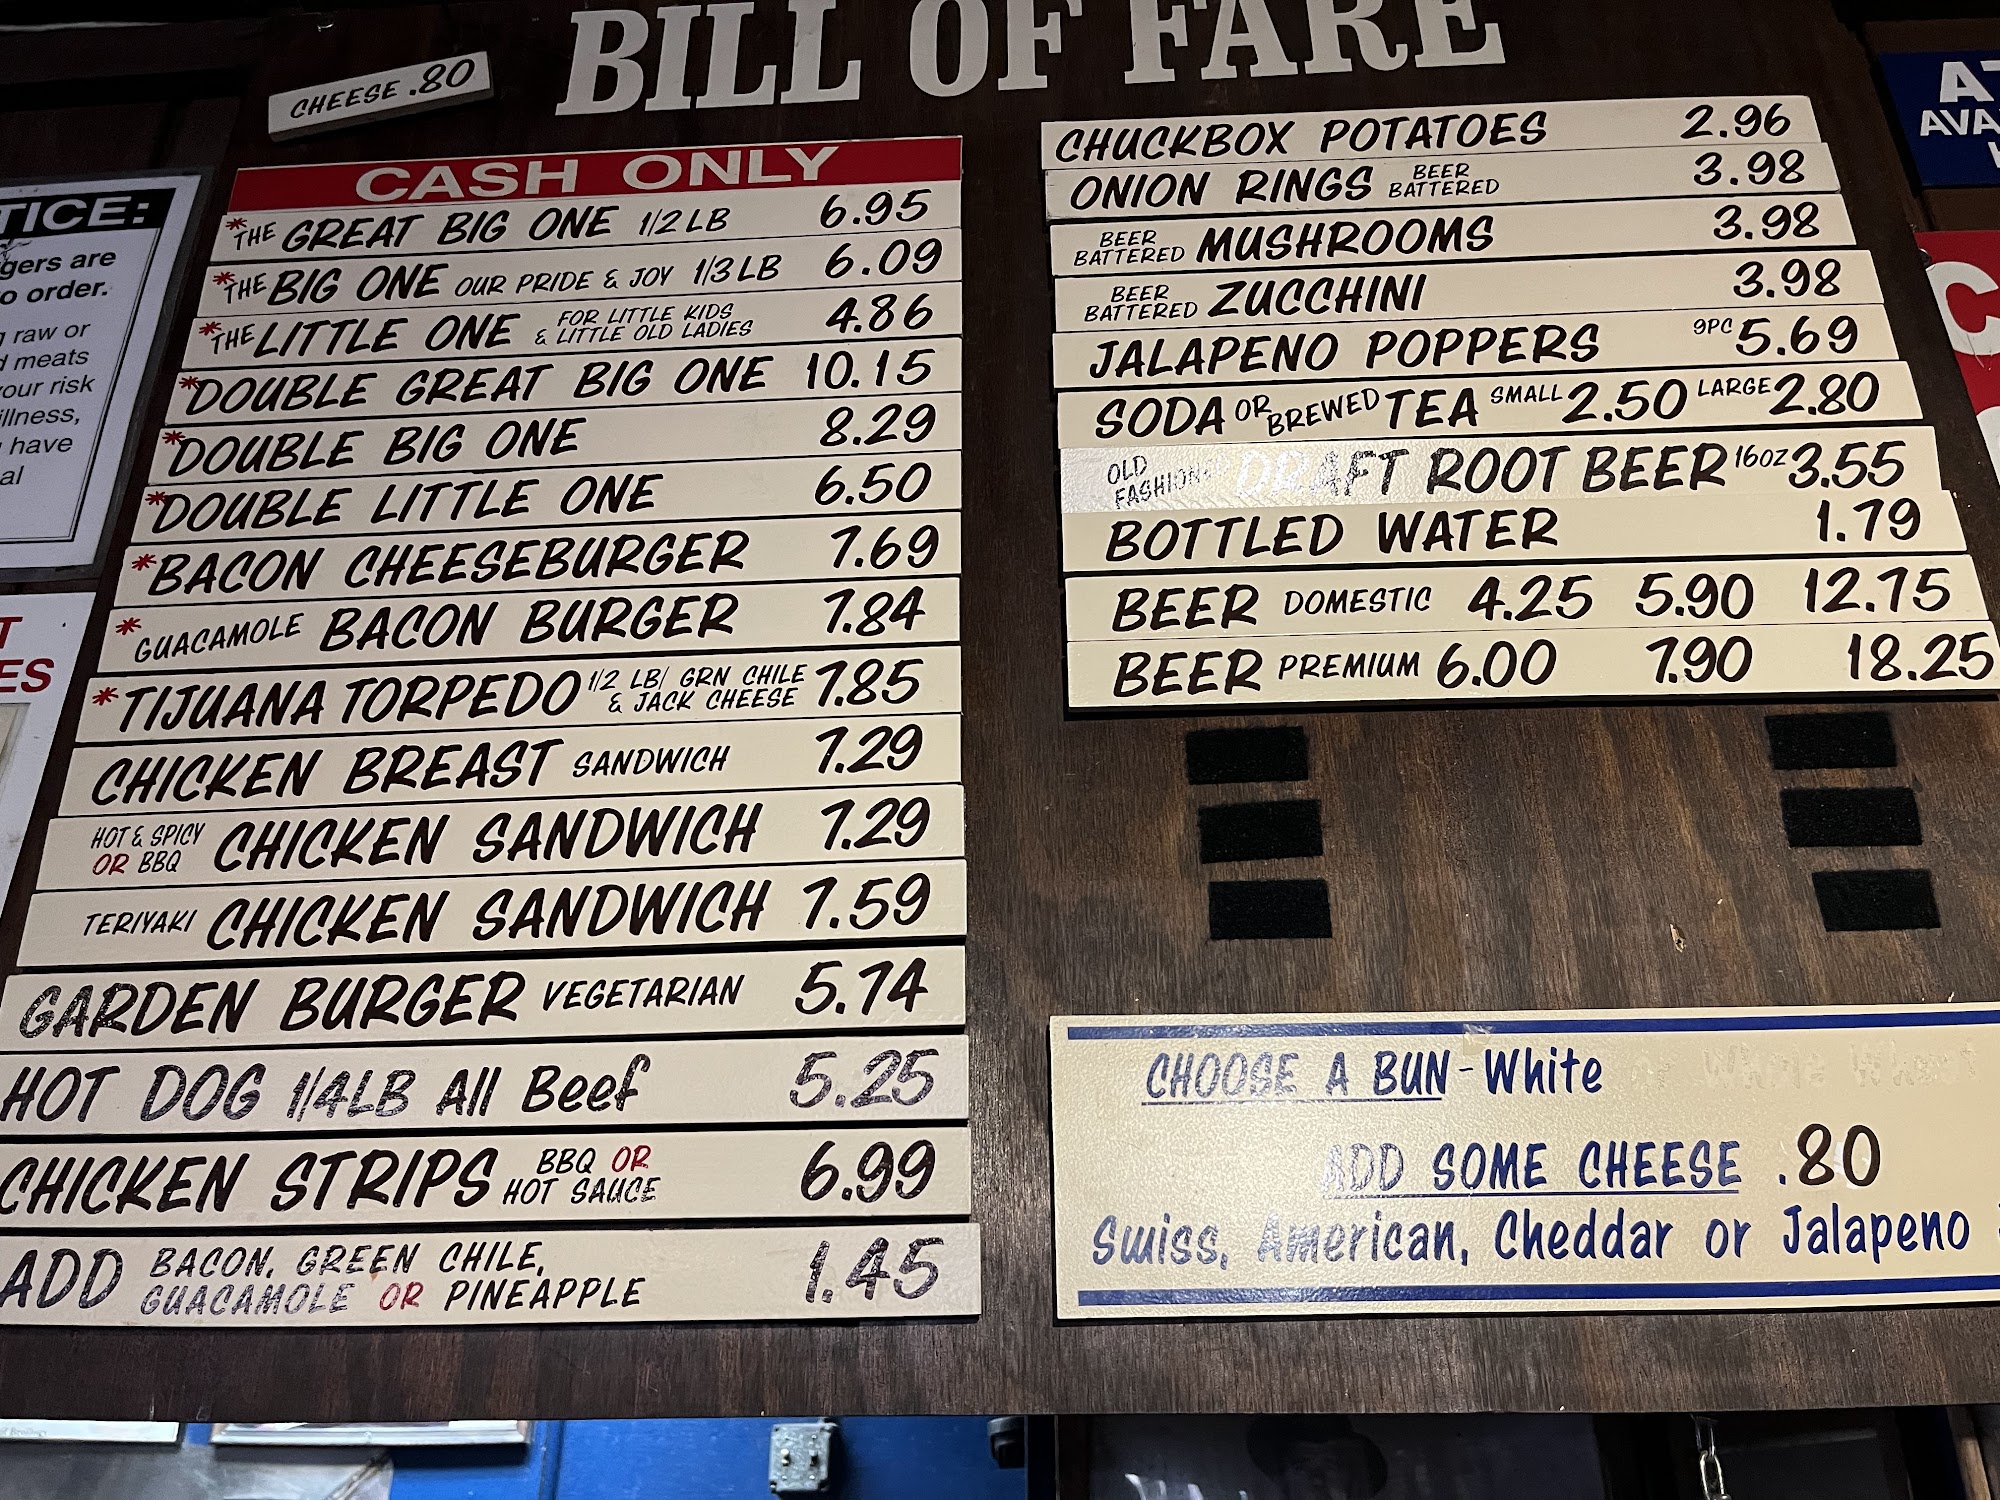 BILL OF FARE
CHEESE .80
CASH ONLY
*THE GREAT BIG ONE 1/2 LB 6.95
*THE BIG ONE OUR PRIDE & JOY 1/3 LB 6.09
*THE LITTLE ONE FOR LITTLE KIDS & LITTLE OLD LADIES 4.86
*DOUBLE GREAT BIG ONE 10.15
*DOUBLE BIG ONE 8.29
*DOUBLE LITTLE ONE 6.50
*BACON CHEESEBURGER 7.69
*GUACAMOLE BACON BURGER 7.84
*TIJUANA TORPEDO 1/2 LB/ GRN CHILE & JACK CHEESE 7.85
CHICKEN BREAST SANDWICH 7.29
HOT & SPICY OR BBQ CHICKEN SANDWICH 7.29
TERIYAKI CHICKEN SANDWICH 7.59
GARDEN BURGER VEGETARIAN 5.74
HOT DOG 1/4LB All Beef 5.25
CHICKEN STRIPS BBQ OR HOT SAUCE 6.99
ADD BACON, GREEN CHILE, GUACAMOLE OR PINEAPPLE 1.45
CHUCKBOX POTATOES 2.96
ONION RINGS BEER BATTERED 3.98
BEER BATTERED MUSHROOMS 3.98
BEER BATTERED ZUCCHINI 3.98
JALAPENO POPPERS 9PC 5.69
SODA OR BREWED TEA SMALL 2.50 LARGE 2.80
OLD FASHIONED DRAFT ROOT BEER 16OZ 3.55
BOTTLED WATER 1.79
BEER DOMESTIC 4.25 5.90 12.75
BEER PREMIUM 6.00 7.90 18.25
CHOOSE A BUN - White
ADD SOME CHEESE .80
Swiss, American, Cheddar or Jalapeno
TICE:
gers are
o order.
g raw or
d meats
your risk
illness,
have
al
T
ES
AT
AVA